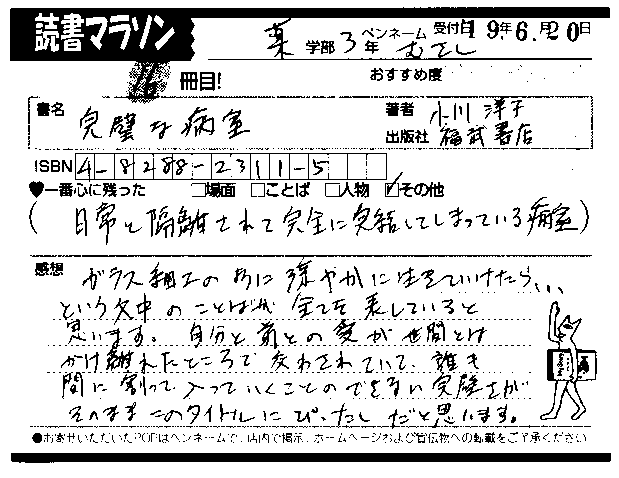 読書マラソン
薬 学部 3 年 ペンネーム むさし 受付日 9年6月20日
16 冊目! おすすめ度
書名 完璧な病室 著者 小川 洋子
出版社 福武書店
ISBN 4-8288-2311-5
♥一番心に残った □場面 □ことば □人物 ☑その他
(日常と隔離されて完全に完結してしまっている病室)
感想 ガラス細工のように穏やかに生きていけたら...
という文中のことばが全てを表していると
思います。自分と弟との愛が世間とは
かけ離れたところで交わされていて、誰も
間に割って入っていくことのできない完璧さが
そのままこのタイトルにぴったしだと思います。
●お寄せいただいたPOPはペンネームで、店内で掲示、ホームページおよび宣伝物への転載をご了承ください